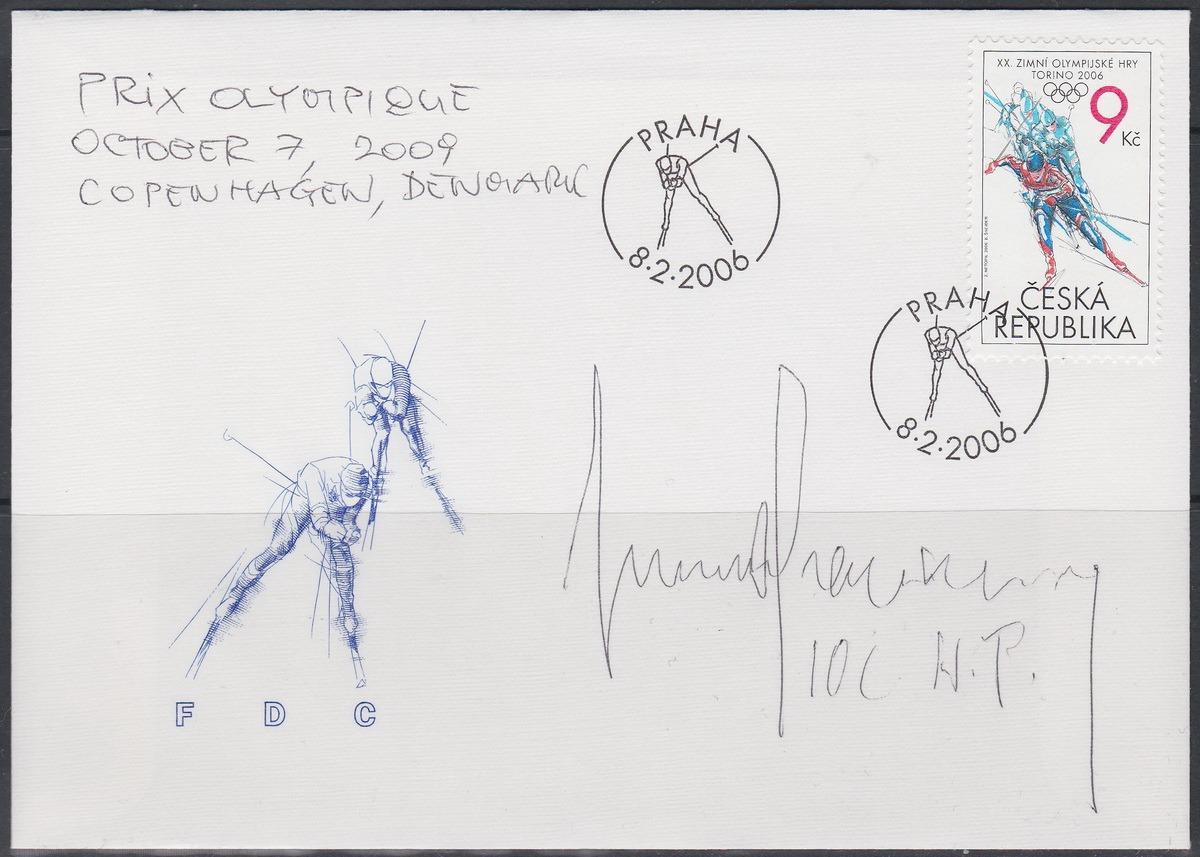 PRIX OLYMPIQUE
OCTOBER 7, 2009
COPENHAGEN, DENMARK
PRAHA
8.2.2006
XX. ZIMNÍ OLYMPIJSKÉ HRY
TORINO 2006
9
Kč
ČESKÁ
REPUBLIKA
PRAHA
8.2.2006
IOC H.P.
F D C